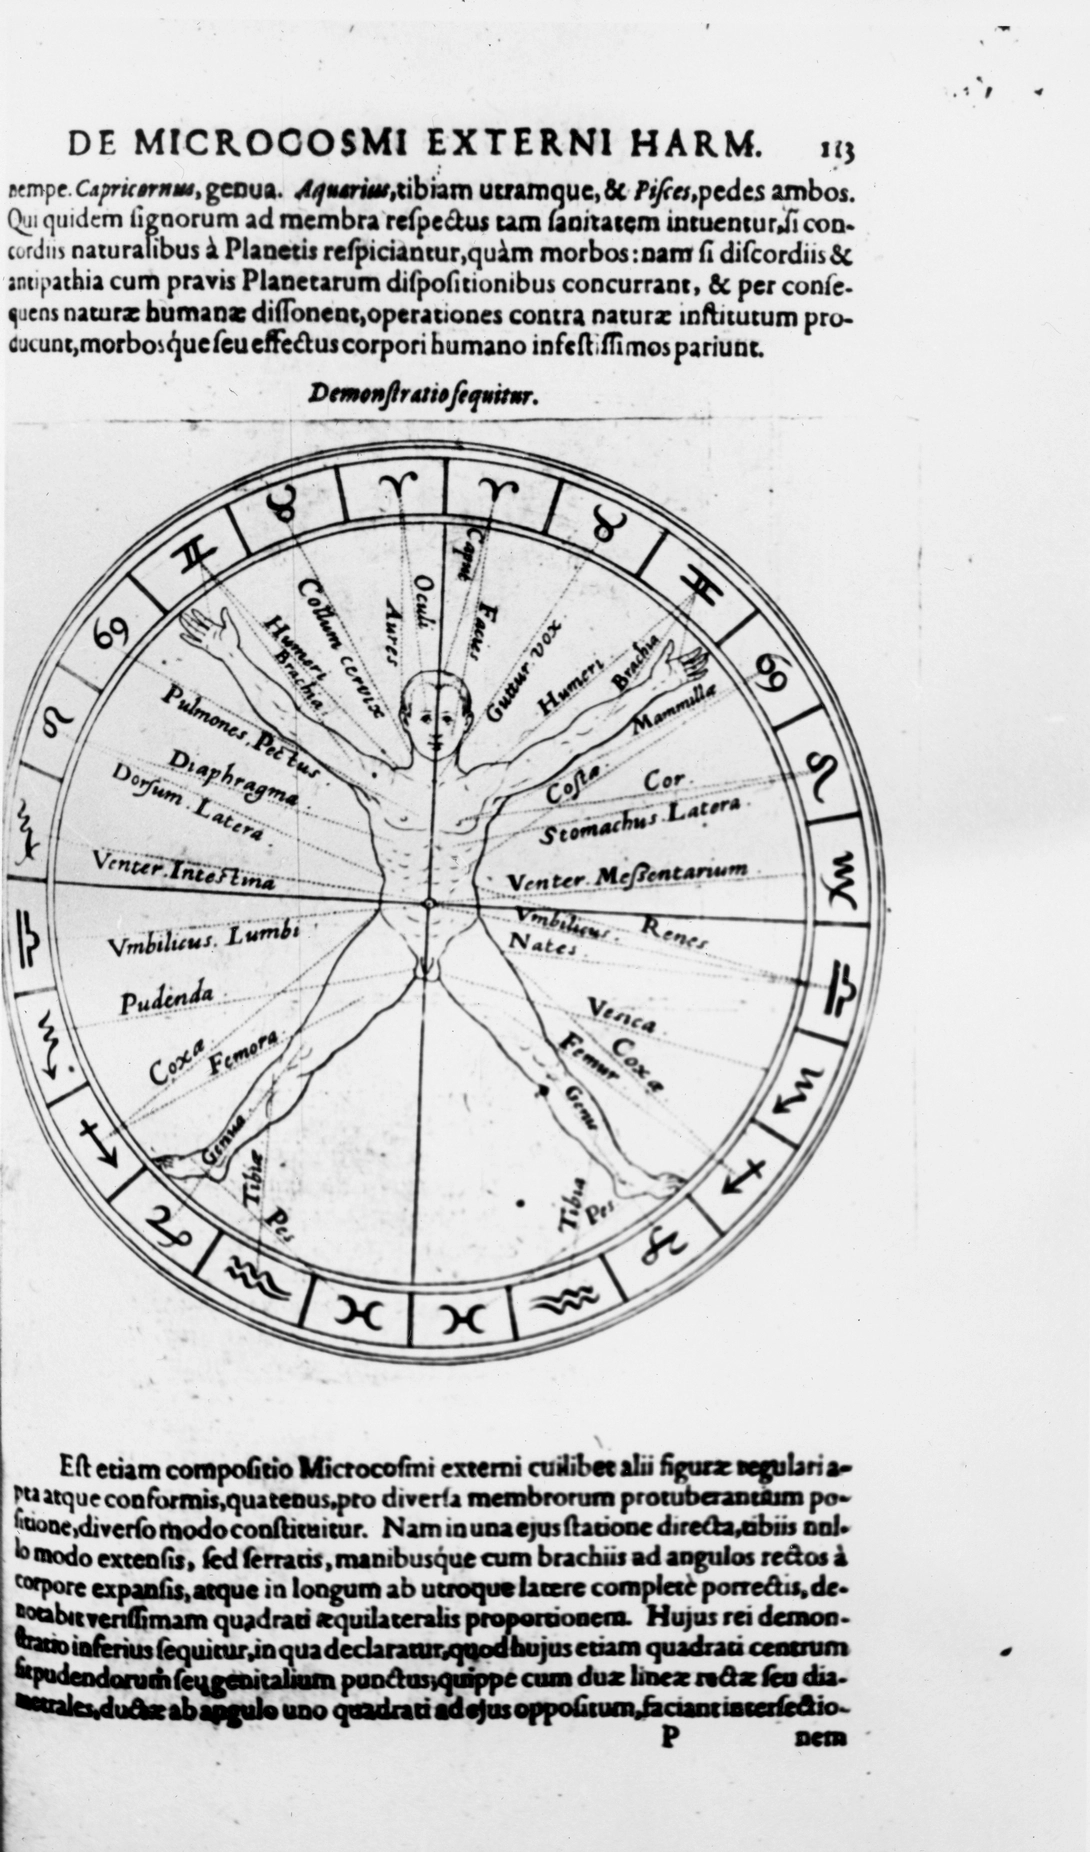 DE MICROCOSMI EXTERNI HARM. 113
nempe. Capricornus, genua. Aquarius, tibiam utramque, & Piſces, pedes ambos.
Qui quidem ſignorum ad membra reſpectus tam ſanitatem intuentur, ſi con-
cordiis naturalibus à Planetis reſpiciantur, quàm morbos: nam ſi diſcordiis &
antipathia cum pravis Planetarum diſpoſitionibus concurrant, & per conſe-
quens naturæ humanæ diſſonent, operationes contra naturæ inſtitutum pro-
ducunt, morbosq́ue ſeu effectus corpori humano infeſtiſſimos pariunt.
Demonſtratio ſequitur.
♈ ♈
♉ ♉
♊ ♊
♋ ♋
♌ ♌
♍ ♍
♎ ♎
♏ ♏
♐ ♐
♑ ♑
♒ ♒
♓ ♓
Caput
Oculi
Aures
Facies
Collum cervix
Humeri
Brachia
Guttur. vox
Humeri
Brachia
Mammillæ
Pulmones. Pectus
Diaphragma
Dorſum. Latera
Coſtæ
Cor
Stomachus. Latera
Venter. Inteſtina
Venter. Meſſentarium
Vmbilicus. Renes
Nates
Vmbilicus. Lumbi
Pudenda
Veſica
Coxæ
Femora
Coxæ
Femur
Genua
Genu
Tibiæ
Pes
Tibia
Pes
Eſt etiam compoſitio Microcoſmi externi cuilibet alii figuræ regulari a-
pta atque conformis, quatenus, pro diverſa membrorum protuberantium po-
ſitione, diverſo modo conſtituitur. Nam in una ejus ſtatione directa, tibiis nul-
lo modo extenſis, ſed ſerratis, manibusq́ue cum brachiis ad angulos rectos à
corpore expanſis, atque in longum ab utroque latere completè porrectis, de-
notabit veriſſimam quadrati æquilateralis proportionem. Hujus rei demon-
ſtratio inferius ſequitur, in qua declaratur, quod hujus etiam quadrati centrum
ſit pudendorum ſeu genitalium punctus; quippe cum duæ lineæ rectæ ſeu dia-
metrales, ductæ ab angulo uno quadrati ad ejus oppoſitum, faciant interſectio-
P nem